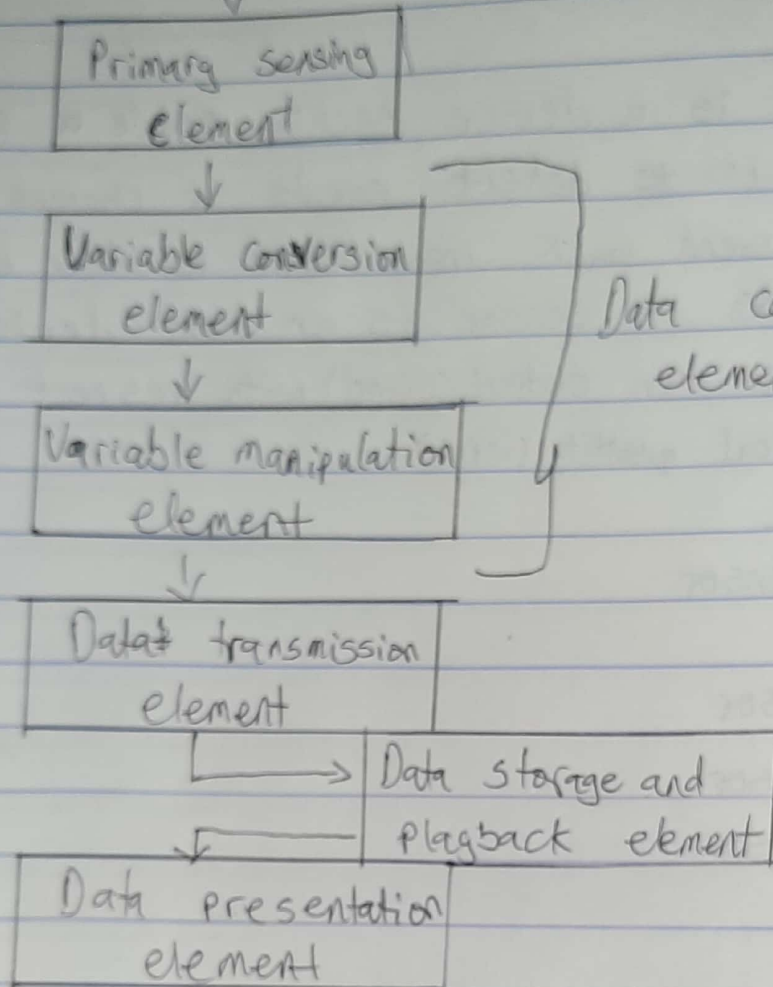 Primary sensing
element
Variable conversion
element
Data
Variable manipulation
element
Data transmission
element
Data storage and
playback element
Data presentation
element